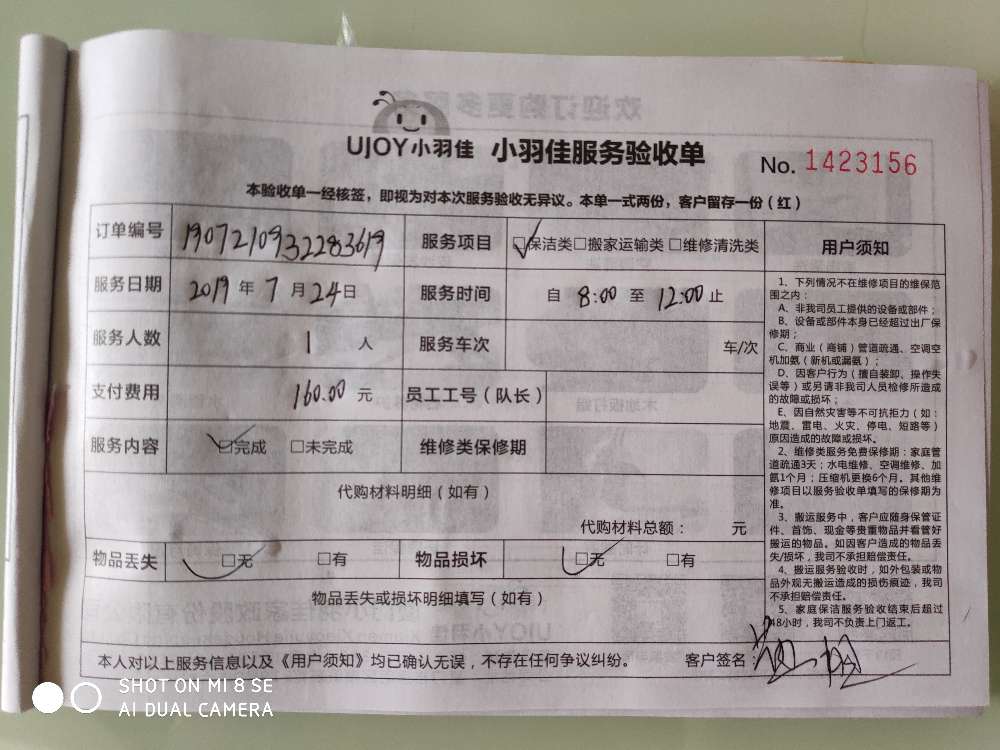 UJOY小羽佳 小羽佳服务验收单 No. 1423156
本验收单一经核签，即视为对本次服务验收无异议。本单一式两份，客户留存一份（红）
订单编号 1907210932283619 服务项目 ☑保洁类□搬家运输类□维修清洗类
服务日期 2019年7月24日 服务时间 自 8:00 至 12:00 止
服务人数 1 人 服务车次 车/次
支付费用 160.00 元 员工工号（队长）
服务内容 ☑完成 □未完成 维修类保修期
代购材料明细（如有）
代购材料总额： 元
物品丢失 ☑无 □有 物品损坏 ☑无 □有
物品丢失或损坏明细填写（如有）
本人对以上服务信息以及《用户须知》均已确认无误，不存在任何争议纠纷。 客户签名：
用户须知
1、下列情况不在维修项目的维保范
围之内：
A、非我司员工提供的设备或部件；
B、设备或部件本身已经超过出厂保
修期；
C、商业（商铺）管道疏通、空调空
机加氨（新机或漏氨）；
D、因客户行为（擅自装卸、操作失
误等）或另请非我司人员检修所造成
的故障或损坏；
E、因自然灾害等不可抗拒力（如：
地震、雷电、火灾、停电、短路等）
原因造成的故障或损坏。
2、维修类服务免费保修期：家庭管
道疏通3天；水电维修、空调维修、加
氨1个月；压缩机更换6个月。其他维
修项目以服务验收单填写的保修期为
准。
3、搬运服务中，客户应随身保管证
件、首饰、现金等贵重物品并看管好
搬运的物品。如因客户造成的物品丢
失/损坏，我司不承担赔偿责任。
4、搬运服务验收时，如外包装或物
品外观无搬运造成的损伤痕迹，我司
不承担赔偿责任。
5、家庭保洁服务验收结束后超过
48小时，我司不负责上门返工。
SHOT ON MI 8 SE
AI DUAL CAMERA